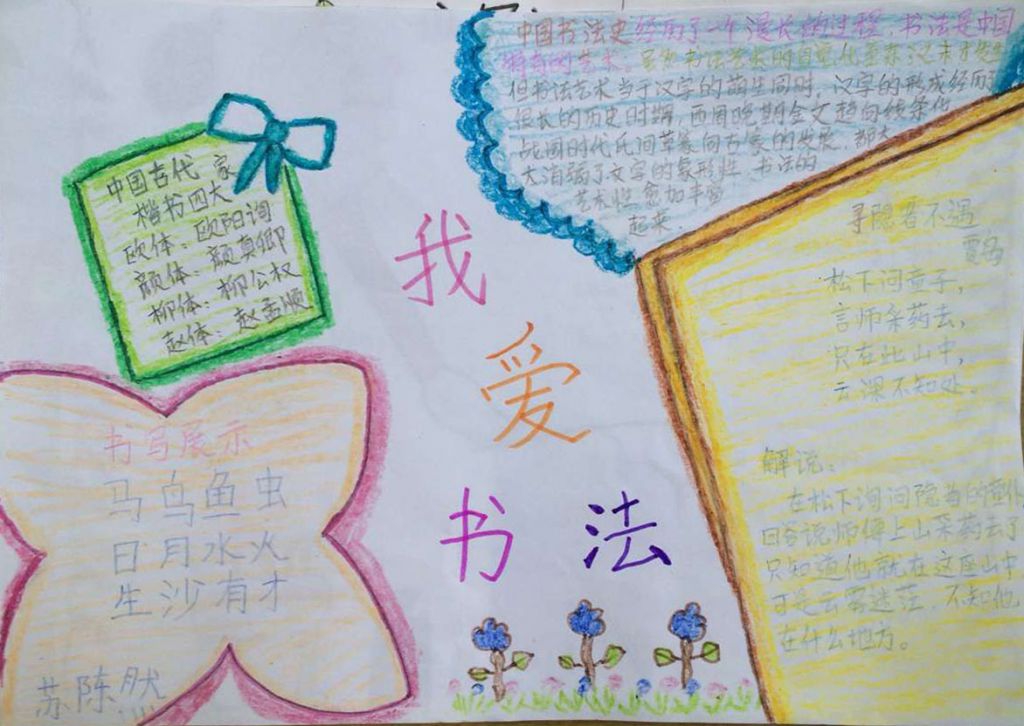 中国书法史经历了一个漫长的过程,书法是中国
特有的艺术。虽然书法艺术的自觉化至东汉末才发生
但书法艺术当于汉字的萌生同时,汉字的形成经历
很长的历史时期,西周晚期金文趋向线条化
战国时代民间草篆向古隶的发展,都大
大消弱了文字的象形性,书法的
艺术性愈加丰富
起来.
中国古代 家
楷书四大
欧体:欧阳询
颜体:颜真卿
柳体:柳公权
赵体:赵孟順
我
爱
书 法
寻隐者不遇
贾岛
松下问童子,
言师采药去,
只在此山中,
云深不知处。
解说:
在松下询问隐当的童仆
回答说师傅上山采药去了
只知道他就在这座山中
可是云雾迷茫,不知他
在什么地方。
书写展示
马鸟鱼虫
日月水火
生沙有才
苏陈然